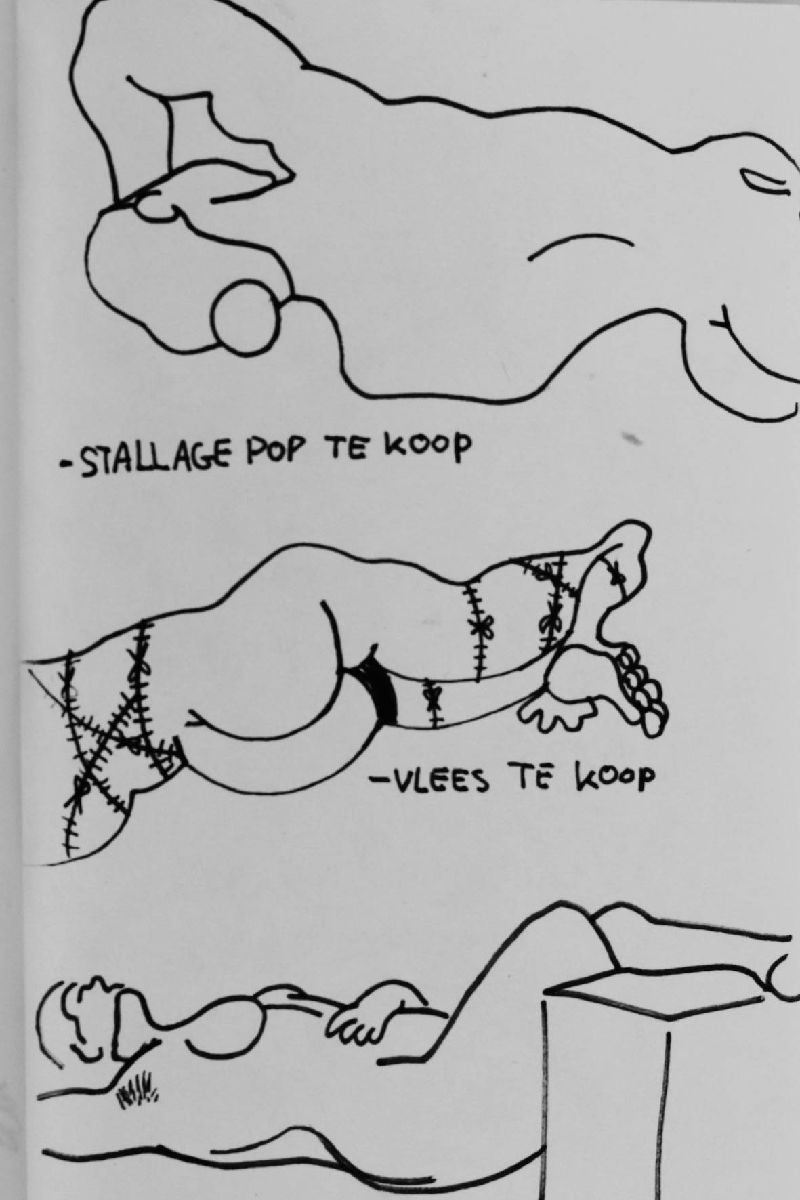 -STALLAGE POP TE KOOP
-VLEES TE KOOP